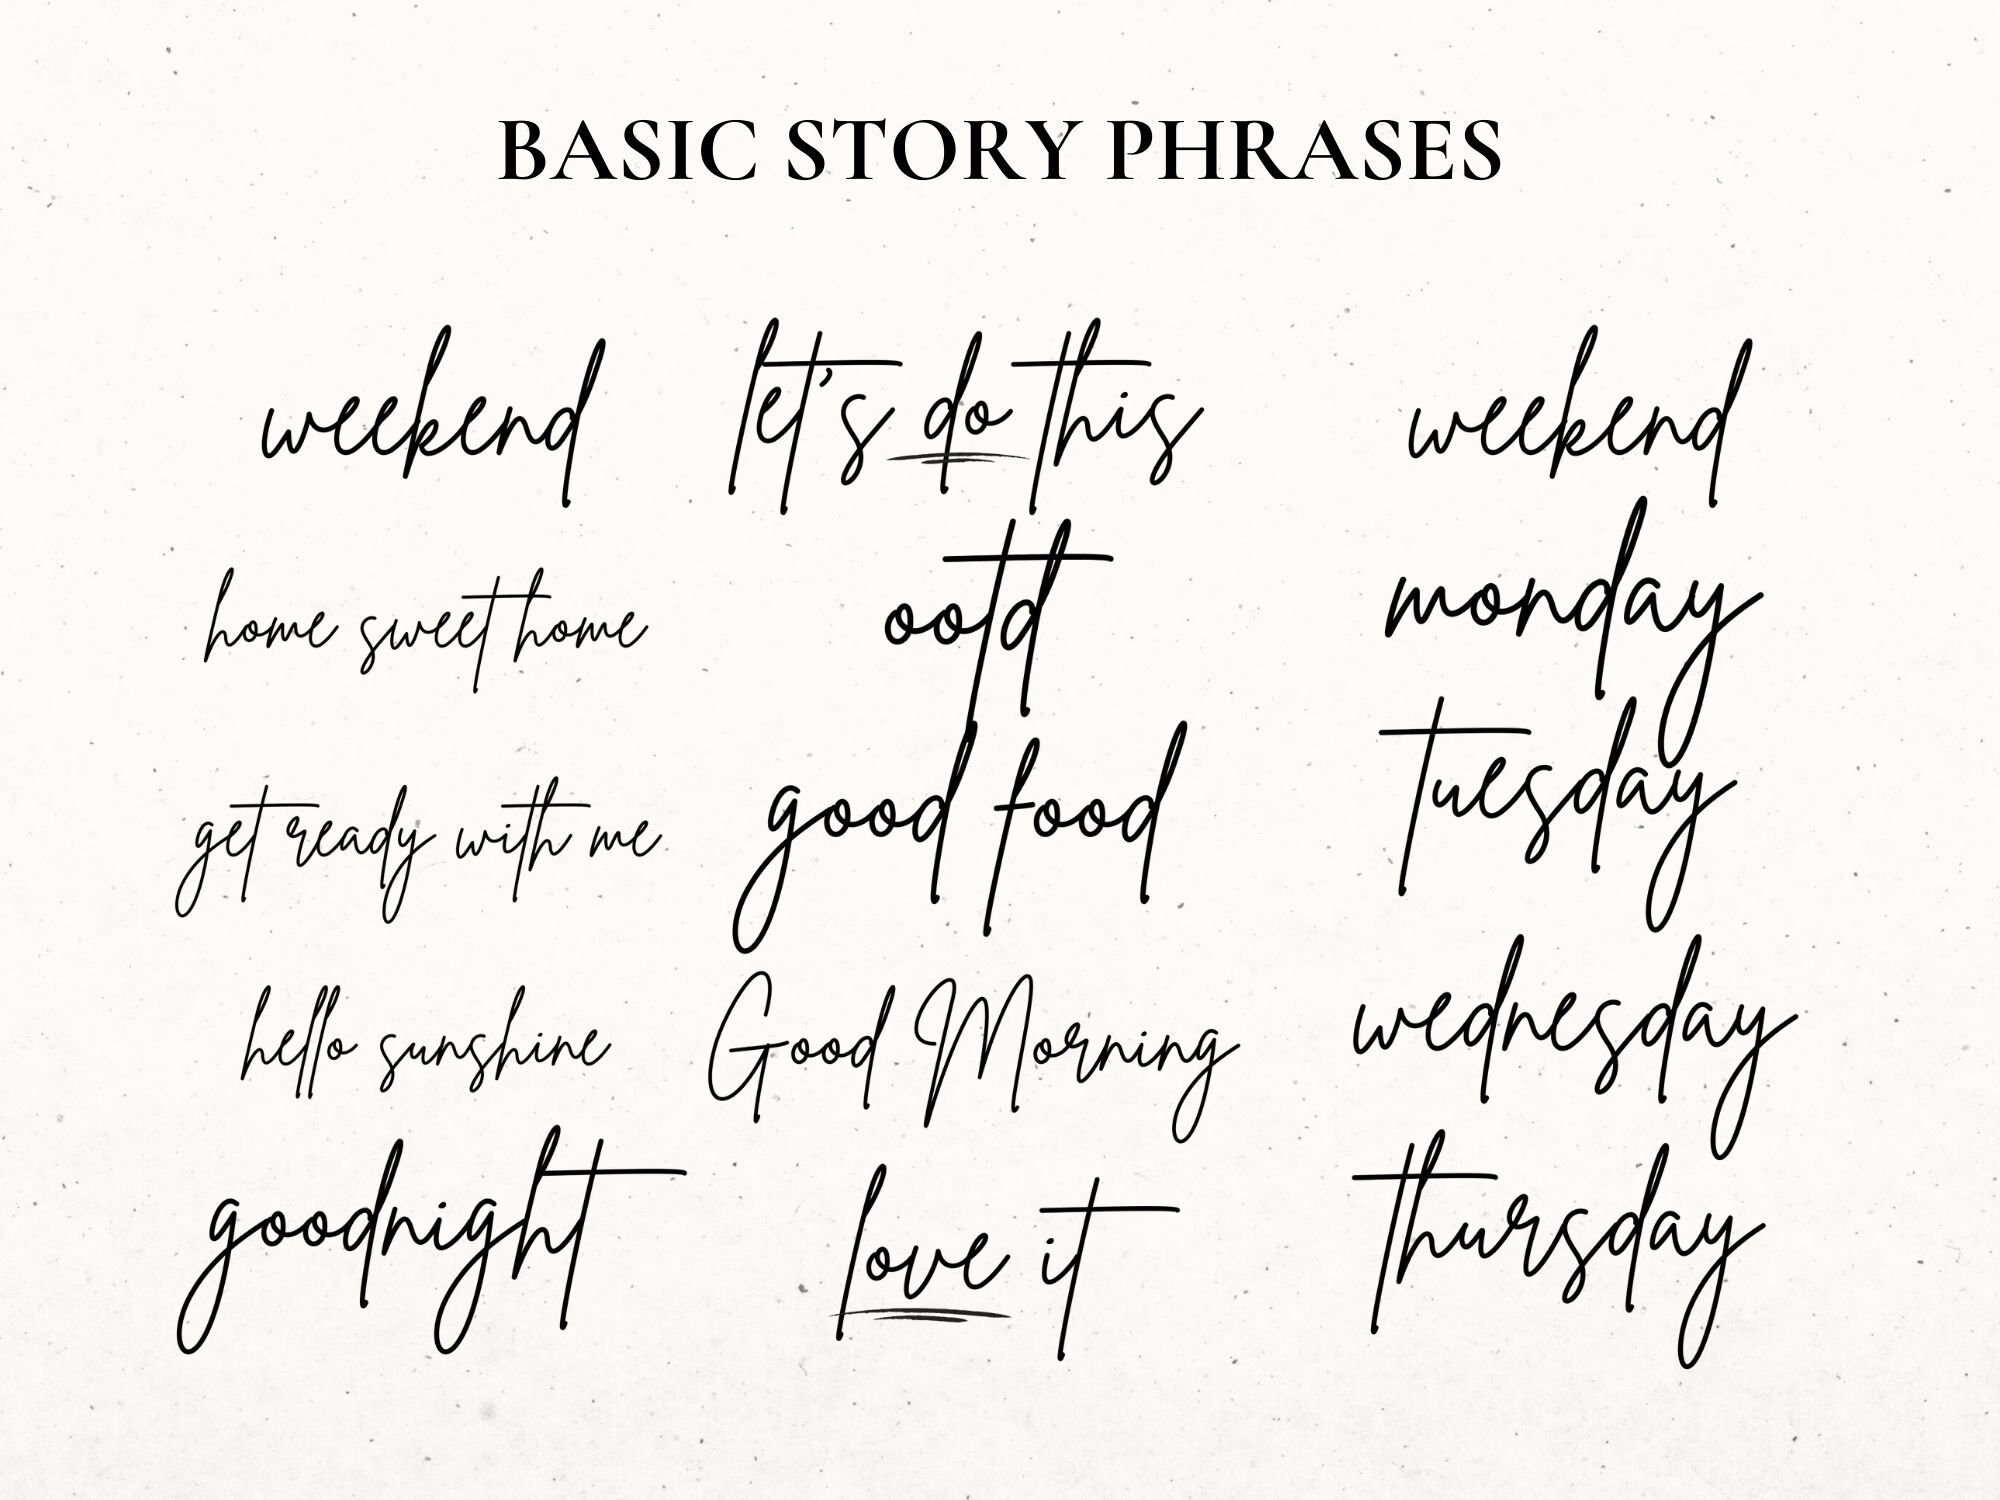 BASIC STORY PHRASES
weekend
let's do this
weekend
home sweet home
ootd
monday
get ready with me
good food
tuesday
hello sunshine
Good Morning
wednesday
goodnight
love it
thursday